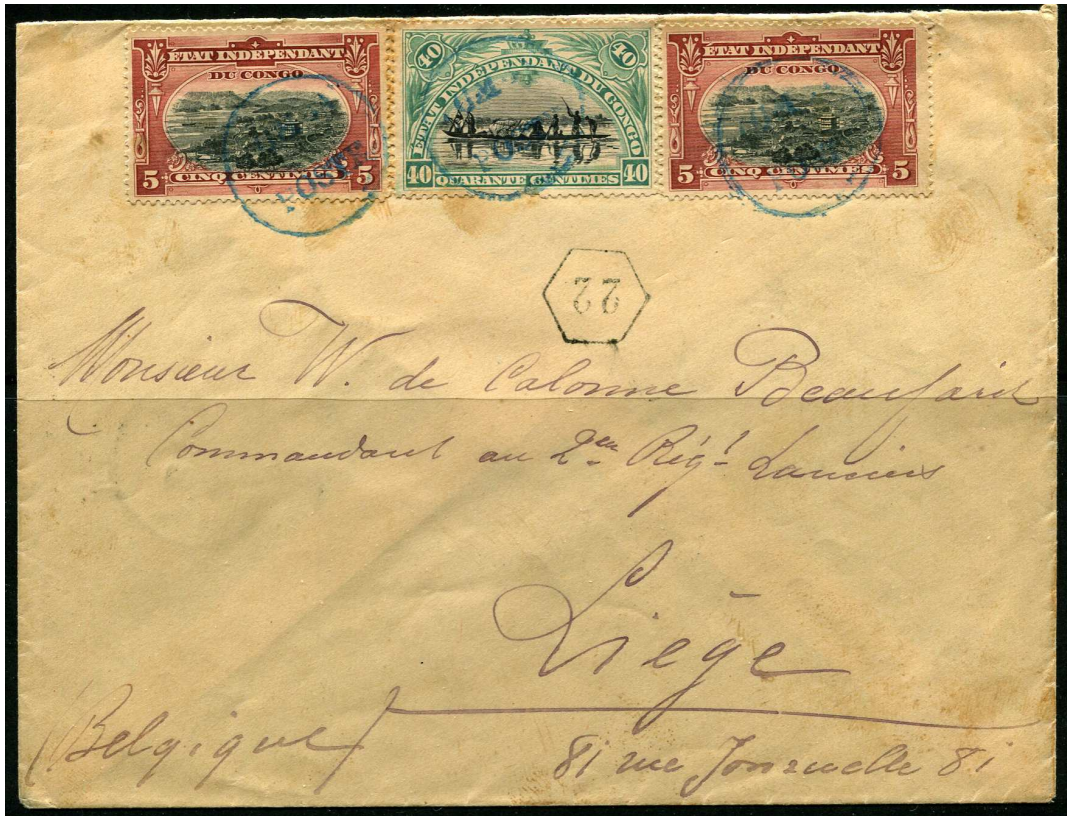 5 ETAT INDEPENDANT 5
DU CONGO
5 CINQ CENTIMES 5
40 ETAT INDEPENDANT DU CONGO 40
40 QUARANTE CENTIMES 40
5 ETAT INDEPENDANT 5
DU CONGO
5 CINQ CENTIMES 5
POSTE
22
Monsieur W. de Calonne Beaufaict
Commandant au 2en Régt Lanciers
Liège
(Belgique)
81 rue 81